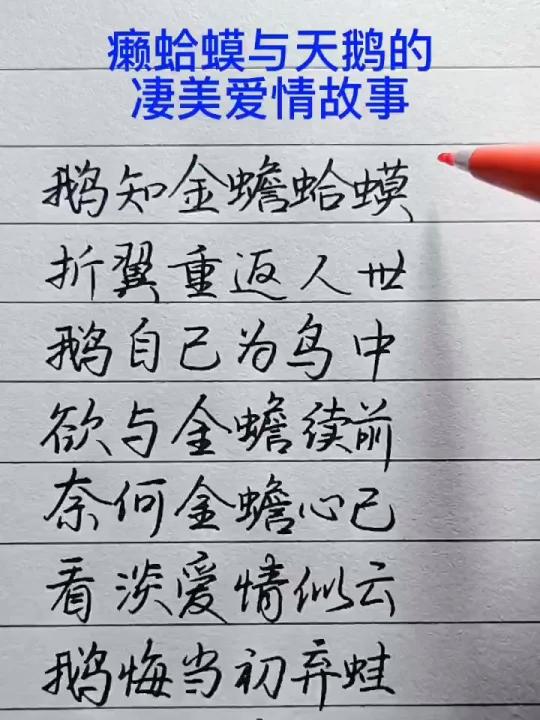 癞蛤蟆与天鹅的
凄美爱情故事
鹅知金蟾蛤蟆
折翼重返人世
鹅自己为鸟中
欲与金蟾续前
奈何金蟾心已
看淡爱情似云
鹅悔当初弃蛙